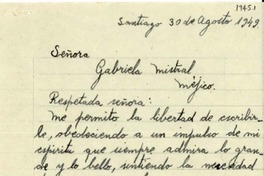 17451
Santiago 30 de Agosto 1949
Señora
Gabriela Mistral
Méjico.
Respetada señora:
Me permito la libertad de escribir-
le, obedeciendo a un impulso de mi
espíritu que siempre admira lo gran-
de y lo bello, sintiendo la necesidad